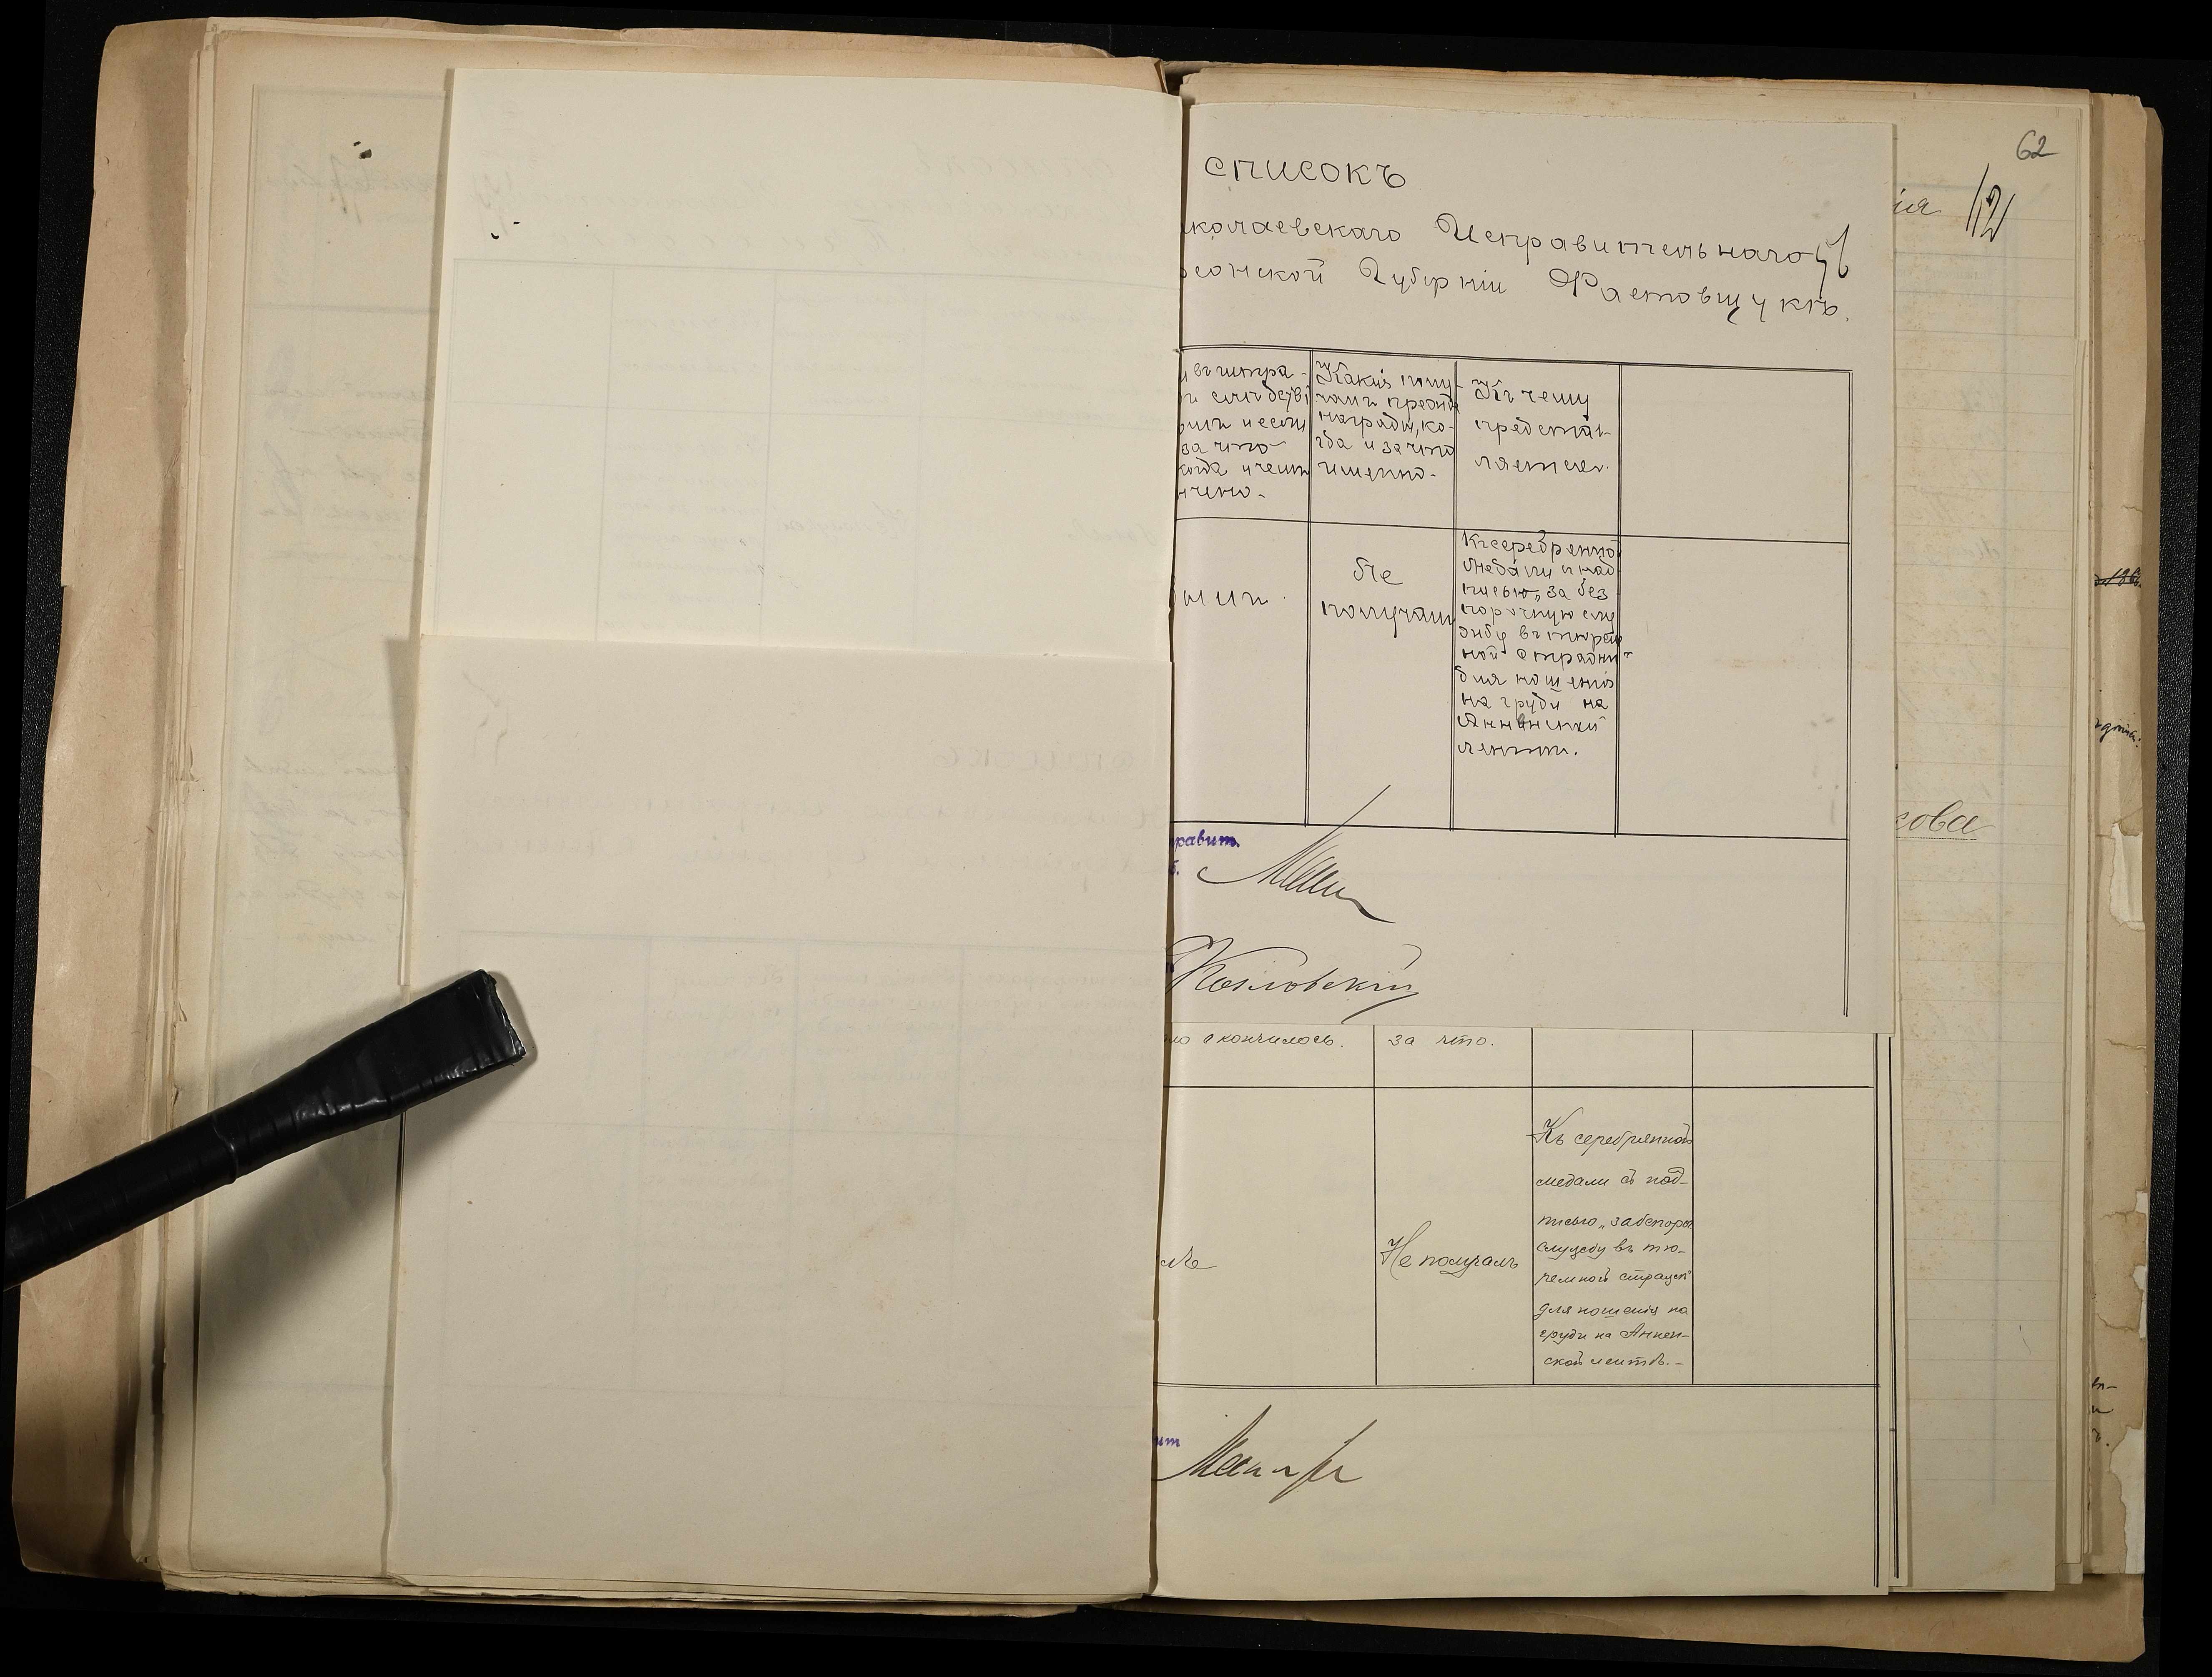 62
списокъ
колаевскаго Исправительнаго
сонской Губерніи Фастовщукъ.
ія
былъ и если
за что
когда и чемъ
нчено.
Какія полу-
чалъ преж.
награды, ко-
гда и за что
именно.
Къ чему
представ-
ляется.
Не
получалъ
Къ серебрянной
медали с над-
писью „за без
порочную слу
жбу въ тюрем
ной стражи"
для ношенія
на груди на
Аннинской
ленте.
равит.
б.
Козловскій
сова
но окончилось.
за что.
Не получалъ
Къ серебрянной
медали съ над-
писью „за беспороч.
службу въ тю-
ремной стражѣ"
для ношенія на
груди на Аннен-
ской лентѣ.-
ит